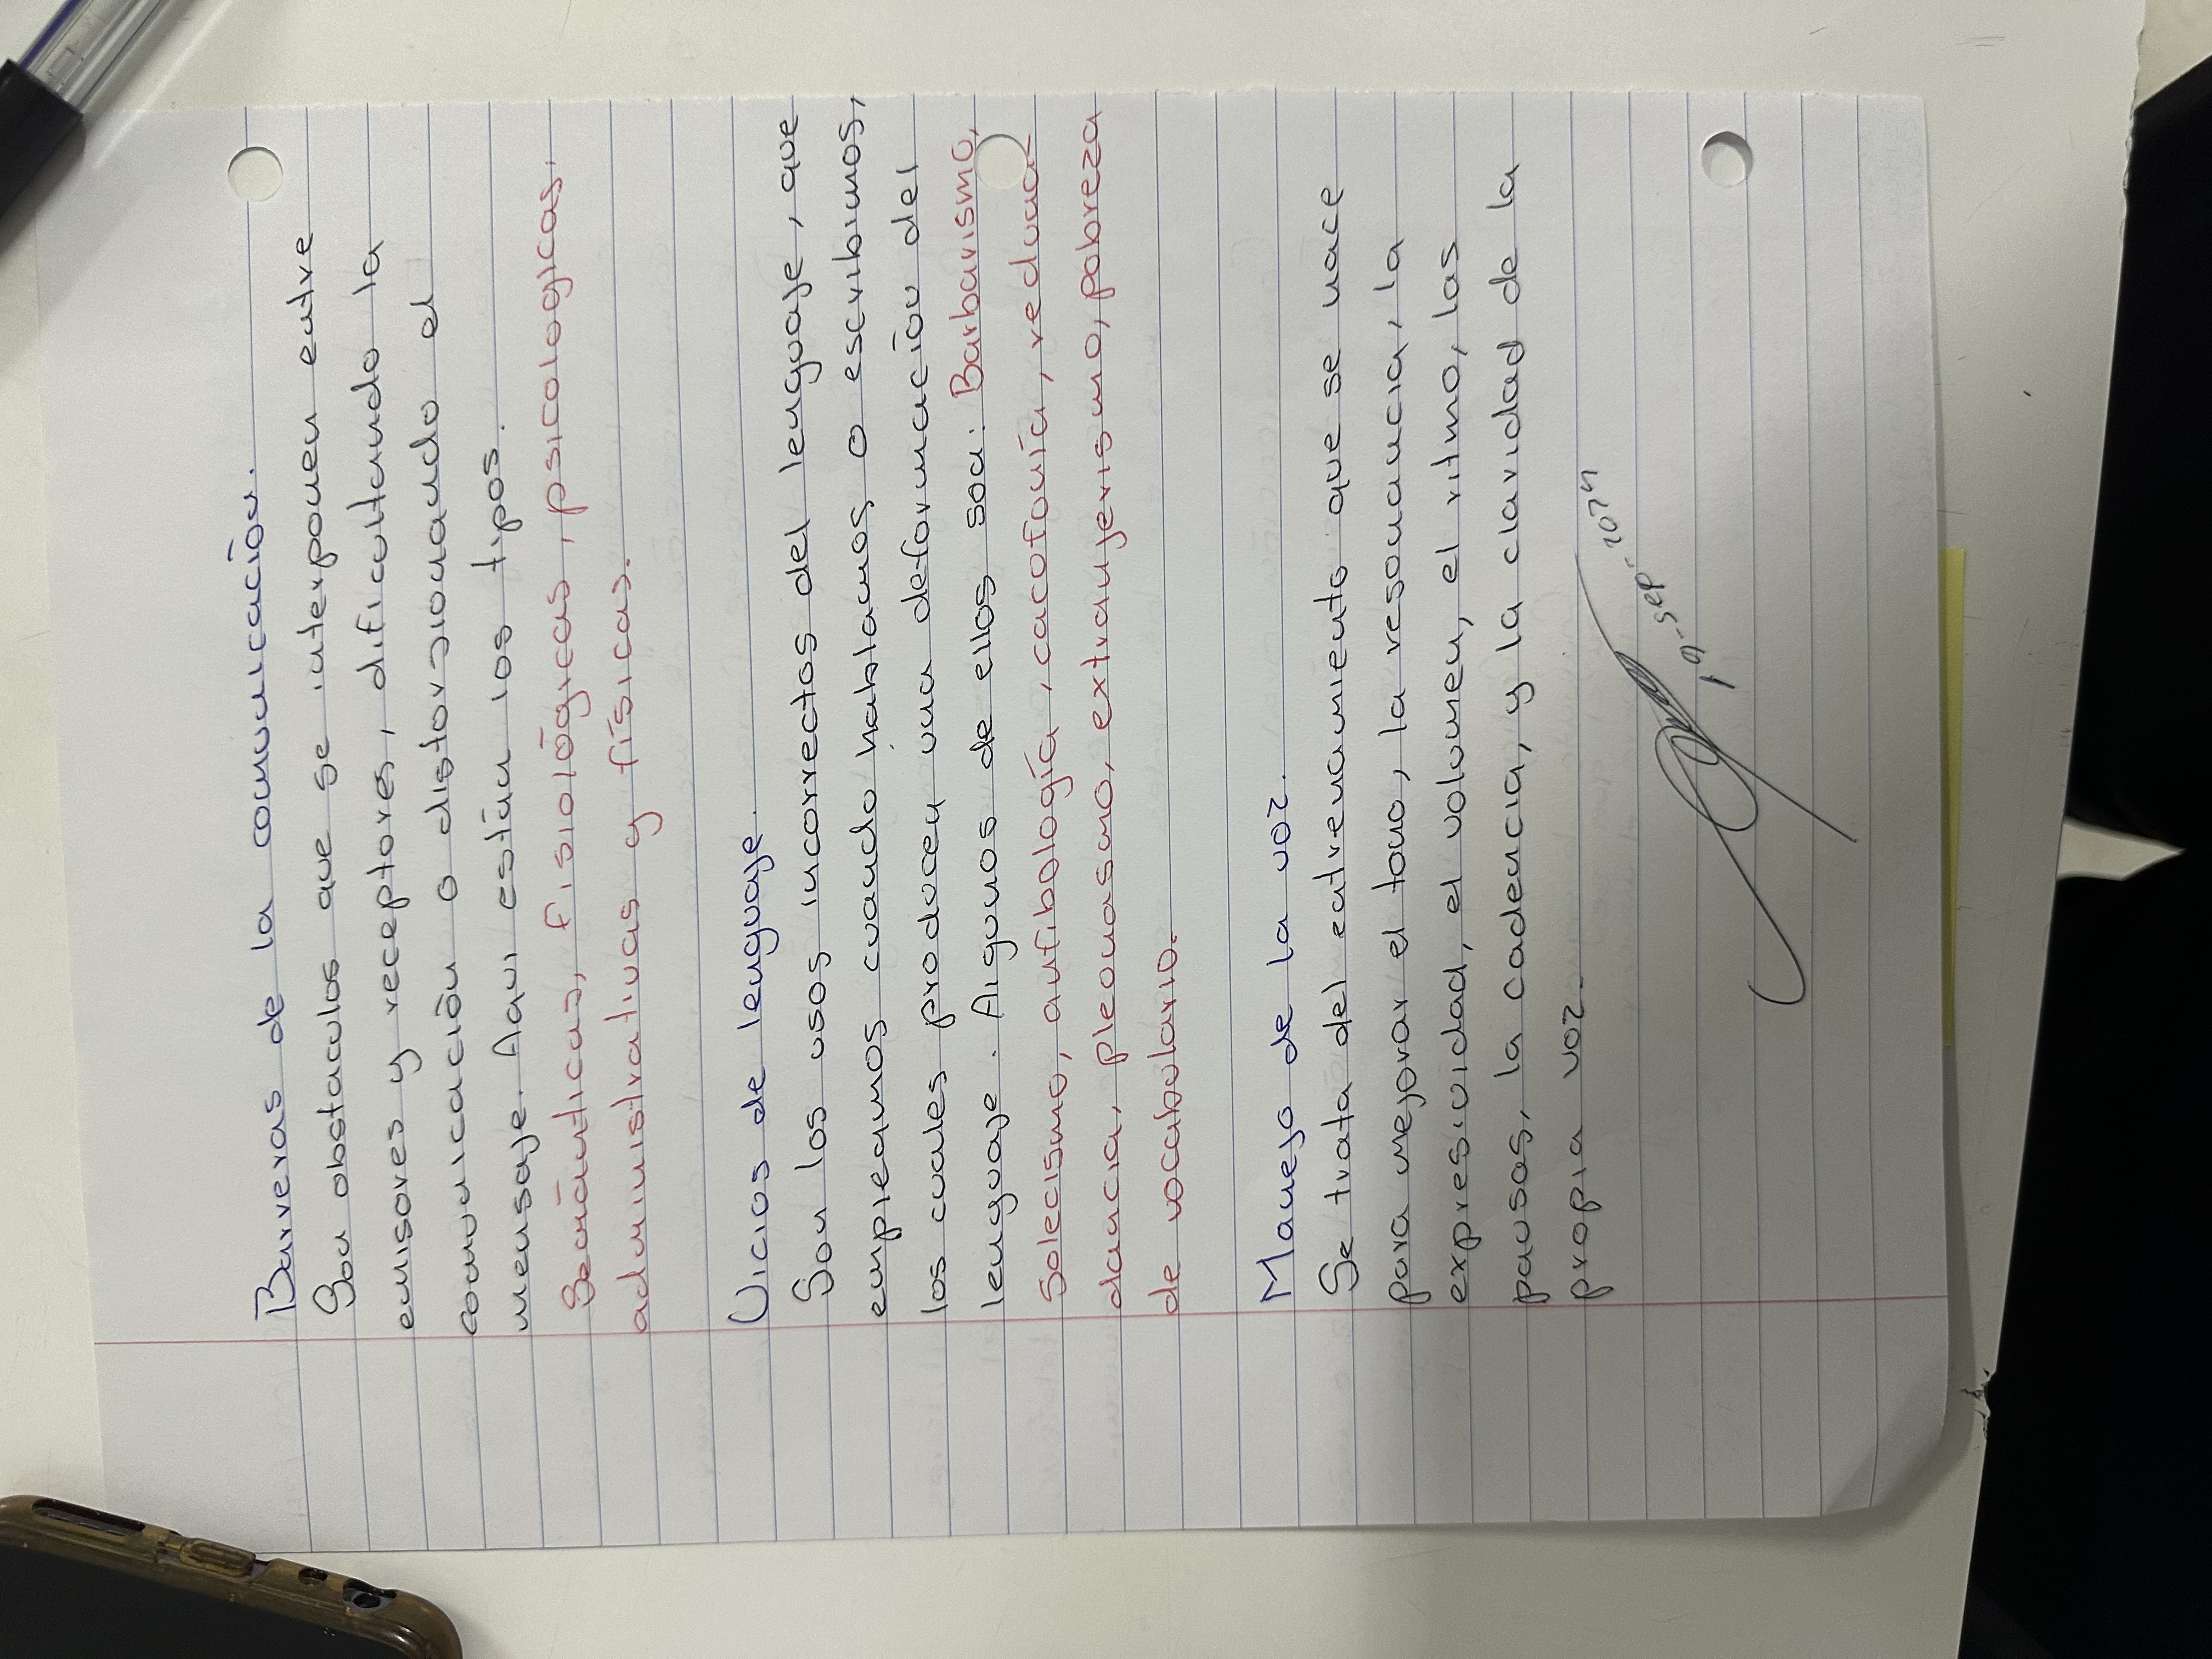 Barreras de la comunicación.
Son obstaculos que se interponen entre
emisores y receptores, dificultando la
comunicación o distorsionando el
mensaje. Aqui están los tipos.
Semánticas, fisiológicas, psicologicas,
administrativas y físicas.
Vicios de lenguaje.
Son los usos incorrectos del lenguaje, que
empleamos cuando hablamos o escribimos,
los cuales producen una deformación del
lenguaje. Algunos de ellos son: Barbarismo,
Solecismo, anfibología, cacofonía, redun-
dancia, pleonasmo, extranjerismo, pobreza
de vocabulario.
Manejo de la voz.
Se trata del entrenamiento que se hace
para mejorar el tono, la resonancia, la
expresividad, el volumen, el ritmo, las
pausas, la cadencia, y la claridad de la
propia voz.
19-sep-2024